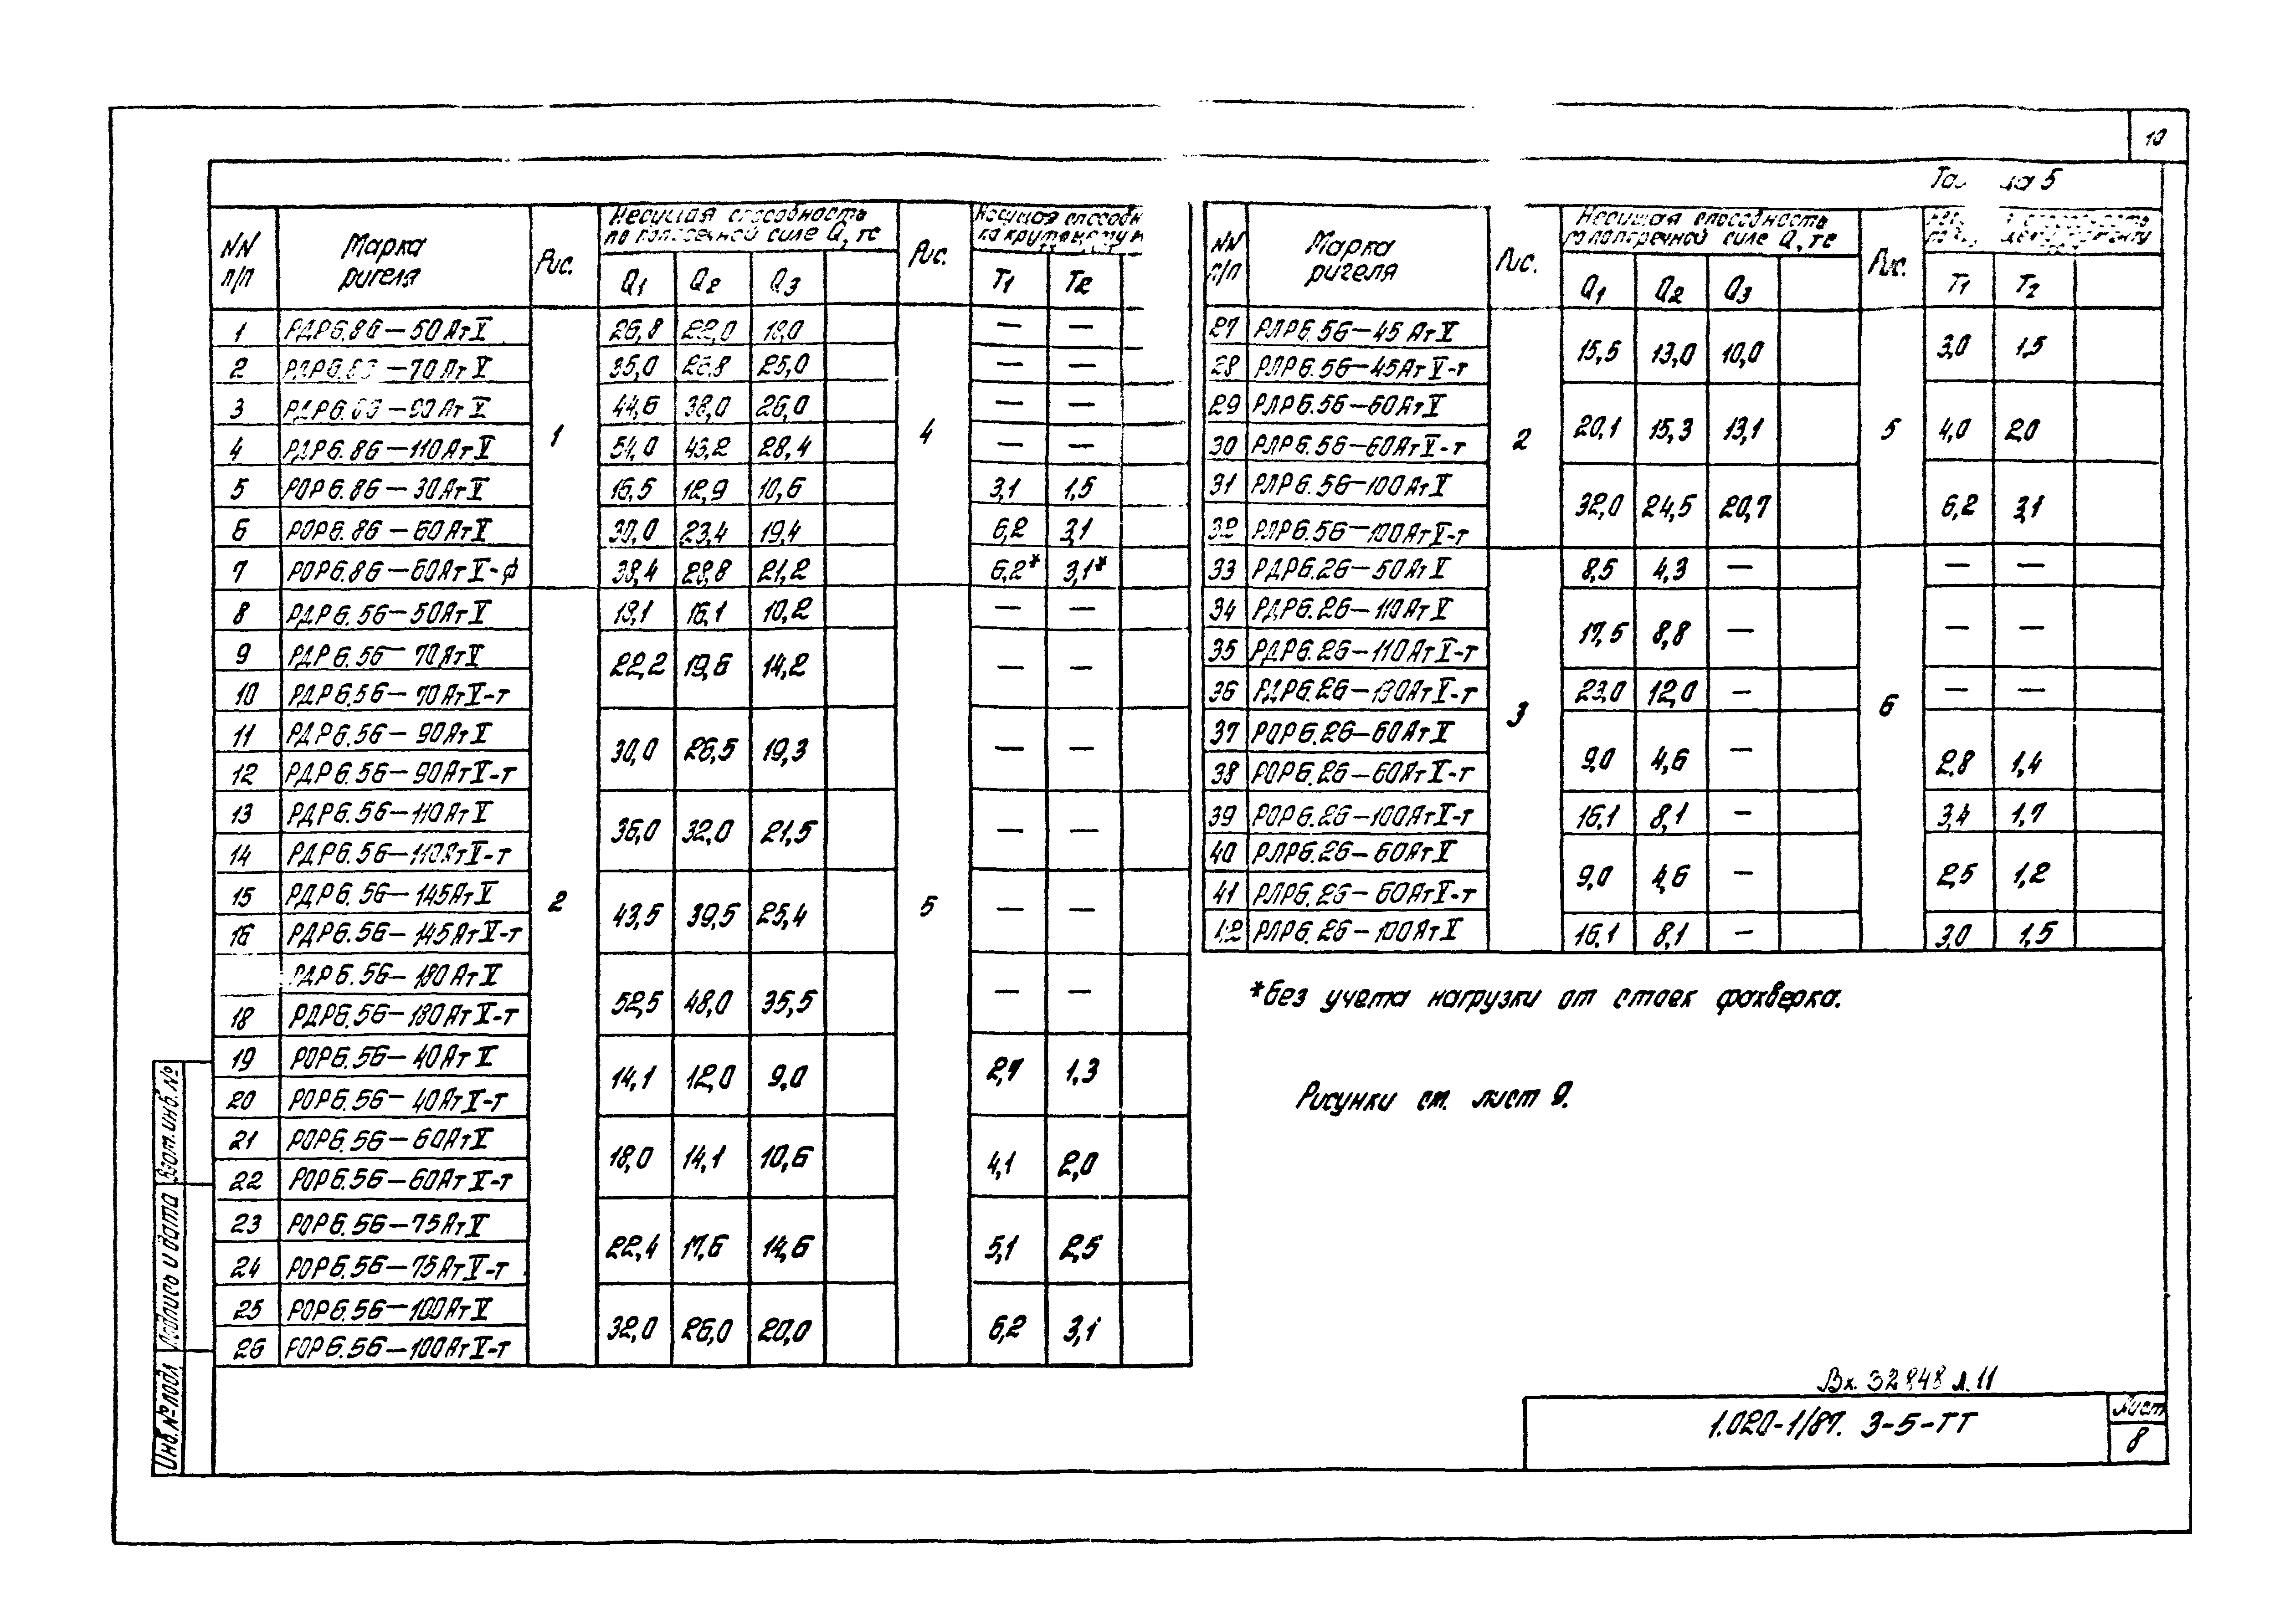 10
Та ца 5
NN п/п Марка ригеля Рис. Несущая способность по поперечной силе Q, тс Рис. Несущая способн по крутящему м
Q1 Q2 Q3 T1 T2
1 РДР6.86-50АтV 1 26,8 22,0 18,0 4 — —
2 РДР6.86-70АтV 35,0 28,8 25,0 — —
3 РДР6.86-90АтV 44,6 38,0 26,0 — —
4 РДР6.86-110АтV 54,0 43,2 28,4 — —
5 РОР6.86-30АтV 16,5 12,9 10,6 3,1 1,5
6 РОР6.86-60АтV 30,0 23,4 19,4 6,2 3,1
7 РОР6.86-60АтV-ф 38,4 28,8 21,2 6,2* 3,1*
8 РДР6.56-50АтV 2 19,1 16,1 10,2 5 — —
9 РДР6.56-70АтV 22,2 19,6 14,2 — —
10 РДР6.56-70АтV-т
11 РДР6.56-90АтV 30,0 26,5 19,3 — —
12 РДР6.56-90АтV-т
13 РДР6.56-110АтV 36,0 32,0 21,5 — —
14 РДР6.56-110АтV-т
15 РДР6.56-145АтV 43,5 39,5 25,4 — —
16 РДР6.56-145АтV-т
РДР6.56-180АтV 52,5 48,0 35,5 — —
18 РДР6.56-180АтV-т
19 РОР6.56-40АтV 14,1 12,0 9,0 2,7 1,3
20 РОР6.56-40АтV-т
21 РОР6.56-60АтV 18,0 14,1 10,6 4,1 2,0
22 РОР6.56-60АтV-т
23 РОР6.56-75АтV 22,4 17,6 14,6 5,1 2,5
24 РОР6.56-75АтV-т
25 РОР6.56-100АтV 32,0 26,0 20,0 6,2 3,1
26 РОР6.56-100АтV-т
NN п/п Марка ригеля Рис. Несущая способность по поперечной силе Q, тс Рис.
Q1 Q2 Q3 T1 T2
27 РЛР6.56-45АтV 2 15,5 13,0 10,0 5 3,0 1,5
28 РЛР6.56-45АтV-т
29 РЛР6.56-60АтV 20,1 15,3 13,1 4,0 2,0
30 РЛР6.56-60АтV-т
31 РЛР6.56-100АтV 32,0 24,5 20,7 6,2 3,1
32 РЛР6.56-100АтV-т
33 РДР6.26-50АтV 3 8,5 4,3 — 6 — —
34 РДР6.26-110АтV 17,5 8,8 — — —
35 РДР6.26-110АтV-т
36 РДР6.26-180АтV-т 23,0 12,0 — — —
37 РОР6.26-60АтV 9,0 4,6 — 2,8 1,4
38 РОР6.26-60АтV-т
39 РОР6.26-100АтV-т 16,1 8,1 — 3,4 1,7
40 РЛР6.26-60АтV 9,0 4,6 — 2,5 1,2
41 РЛР6.26-60АтV-т
42 РЛР6.26-100АтV 16,1 8,1 — 3,0 1,5
*без учета нагрузки от стоек фахверка.
Рисунки см. лист 9.
Инв.№ подл Подпись и дата Взам.инв.№
Вх. 32848 л.11
1.020-1/87. 3-5-ТТ
Лист
8